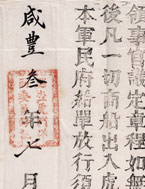 領事官議定章程如無
後凡一切商船出入虎
本軍民府給單放行須
咸豐叁年七月